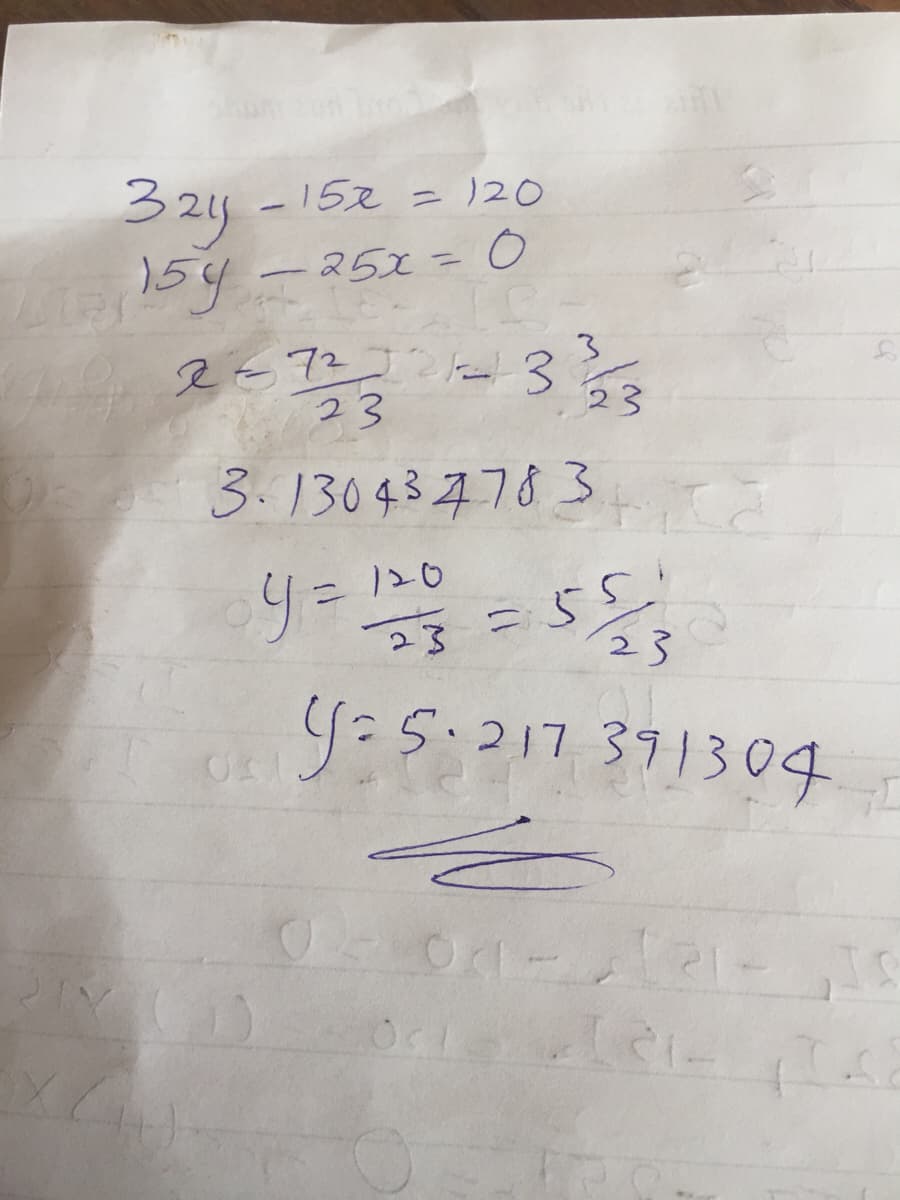 32y - 15x = 120
15y - 25x = 0
x = 72/23 = 3 3/23
3.130434783
y = 120/23 = 5 5/23
y = 5.217391304